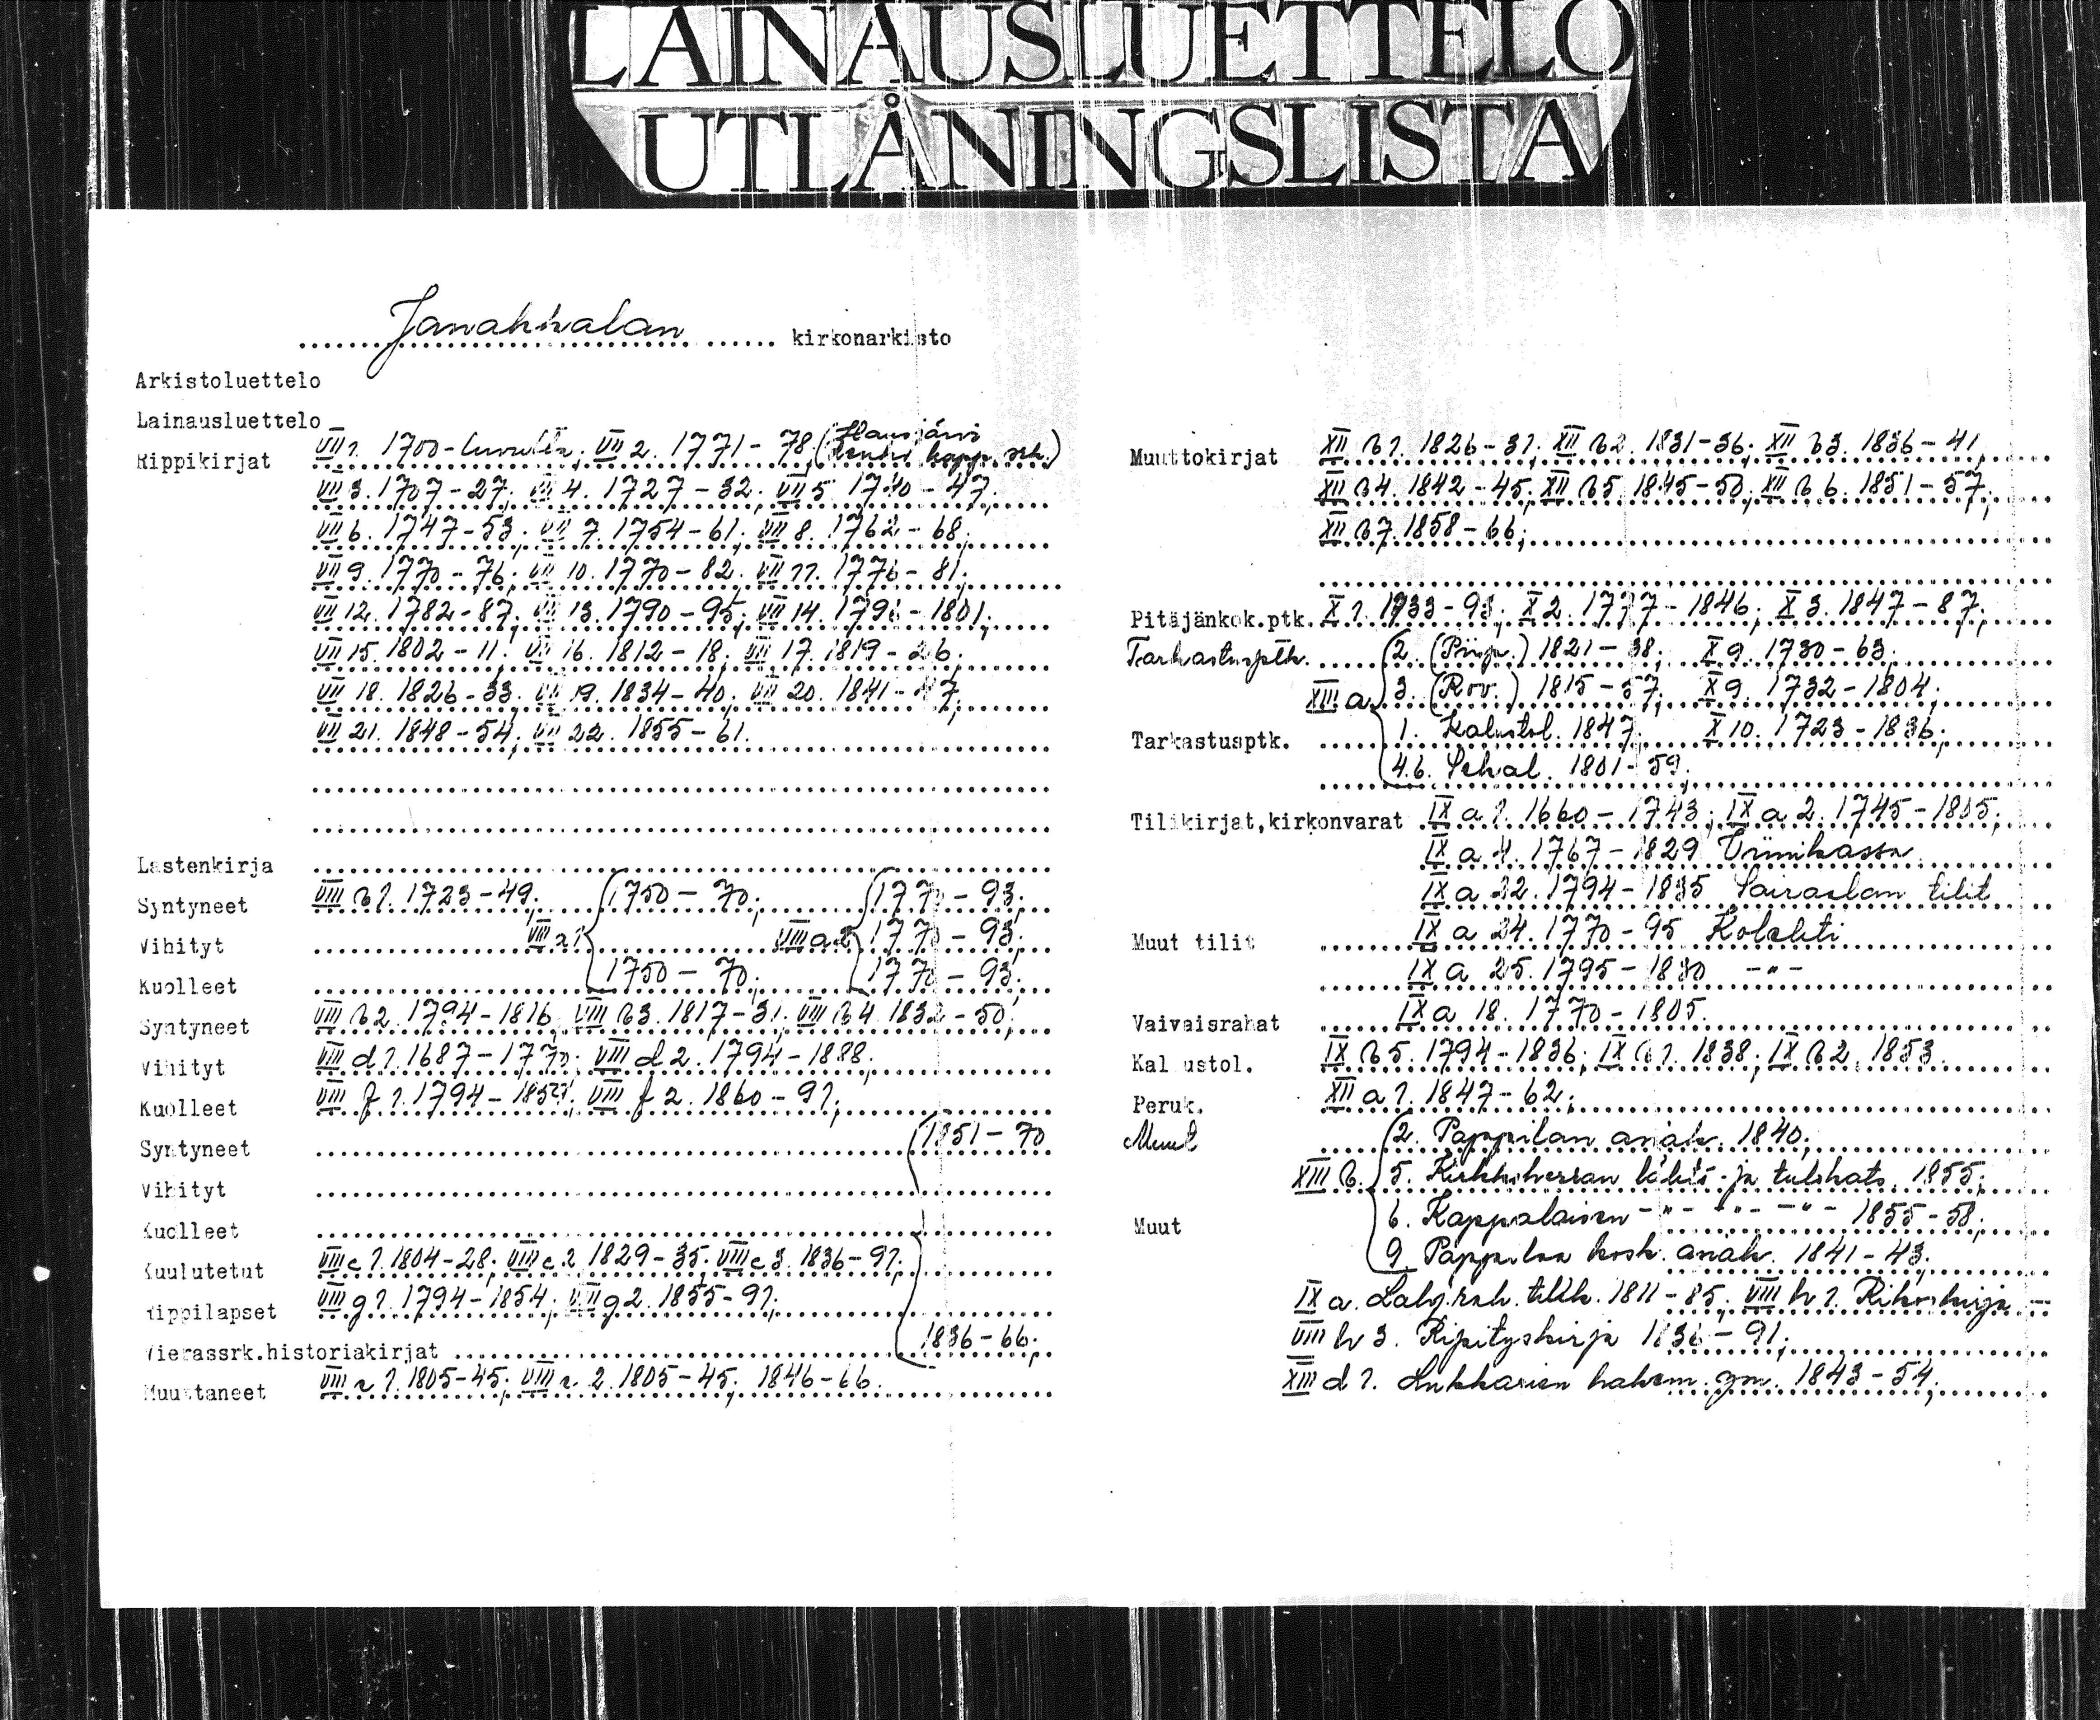 LAINAUSLUETTELO
UTLÅNINGSLISTA
Janakkalan kirkonarkisto
Arkistoluettelo
Lainausluettelo
Rippikirjat VII 1. 1700-luvulta; VII 2. 1771-78 (Hausjärvi
kapp. srk.)
VII 3. 1707-27; VII 4. 1727-32; VII 5 1740-47;
VII 6. 1747-53; VII 7. 1754-61; VII 8. 1762-68;
VII 9. 1770-76; VII 10. 1770-82; VII 11. 1776-81;
VII 12. 1782-87; VII 13. 1790-95; VII 14. 1796-1801;
VII 15. 1802-11; VII 16. 1812-18; VII 17. 1819-26;
VII 18. 1826-33; VII 19. 1834-40; VII 20. 1841-47;
VII 21. 1848-54; VII 22. 1855-61.
Lastenkirja
Syntyneet VIII b 1. 1723-49; 1750-70; 1770-93;
Vihityt VIII a 1 VIII a 2 1770-93;
Kuolleet 1750-70; 1770-93;
Syntyneet VIII b 2. 1794-1816; VIII b 3. 1817-31; VIII b 4. 1832-50;
Vihityt VIII d 1. 1687-1770; VIII d 2. 1794-1888;
Kuolleet VIII f 1. 1794-1859; VIII f 2. 1860-91;
Syntyneet 1851-70
Vihityt
Kuolleet
Kuulutetut VIII c 1. 1804-28; VIII c 2 1829-35; VIII c 3. 1836-91;
Rippilapset VIII g 1. 1794-1854; VIII g 2. 1855-91;
Vierassrk.historiakirjat 1836-66;
Muuttaneet VIII e 1. 1805-45; VIII e 2. 1805-45; 1846-66.
Muuttokirjat XII b 1. 1826-31; XII b 2. 1831-36; XII b 3. 1836-41;
XII b 4. 1842-45; XII b 5. 1845-50; XII b 6. 1851-57;
XII b 7. 1858-66;
Pitäjänkok.ptk. X 1. 1733-93; X 2. 1777-1846; X 3. 1847-87;
Tarkastusptk. 2. (Piisp.) 1821-38; X 9. 1730-63;
XIII a 3. (Rov.) 1815-57; X 9. 1732-1804;
Tarkastusptk. 1. Kalustol. 1847; X 10. 1723-1836;
4.6. Sekal. 1801-59;
Tilikirjat,kirkonvarat IX a 1. 1660-1743; IX a 2. 1745-1805;
IX a 4. 1767-1829 Viinikassa
IX a 22. 1794-1835 Sairaalan tilit
Muut tilit IX a 24. 1770-95 Kolehti
IX a 25. 1795-1830 -"-
Vaivaisrahat IX a 18. 1770-1805.
Kalustol. IX b 5. 1794-1836; IX b 1. 1838; IX b 2. 1853.
Peruk. XII a 1. 1847-62;
Muut 2. Pappilan asiak. 1840;
XIII b 5. Kirkkoherran lähtö- ja tulokats. 1855;
Muut 6. Kappalaisen -"- -"- -"- 1855-58;
9. Pappilaa kosk. asiak. 1841-43;
IX a. Lahj.rah. tilik. 1811-85; VIII h 1. Rikoskirja --
VIII h 3. Ripityskirja 1836-91;
XIII d 1. Lukkarien hakem. ym. 1843-54;